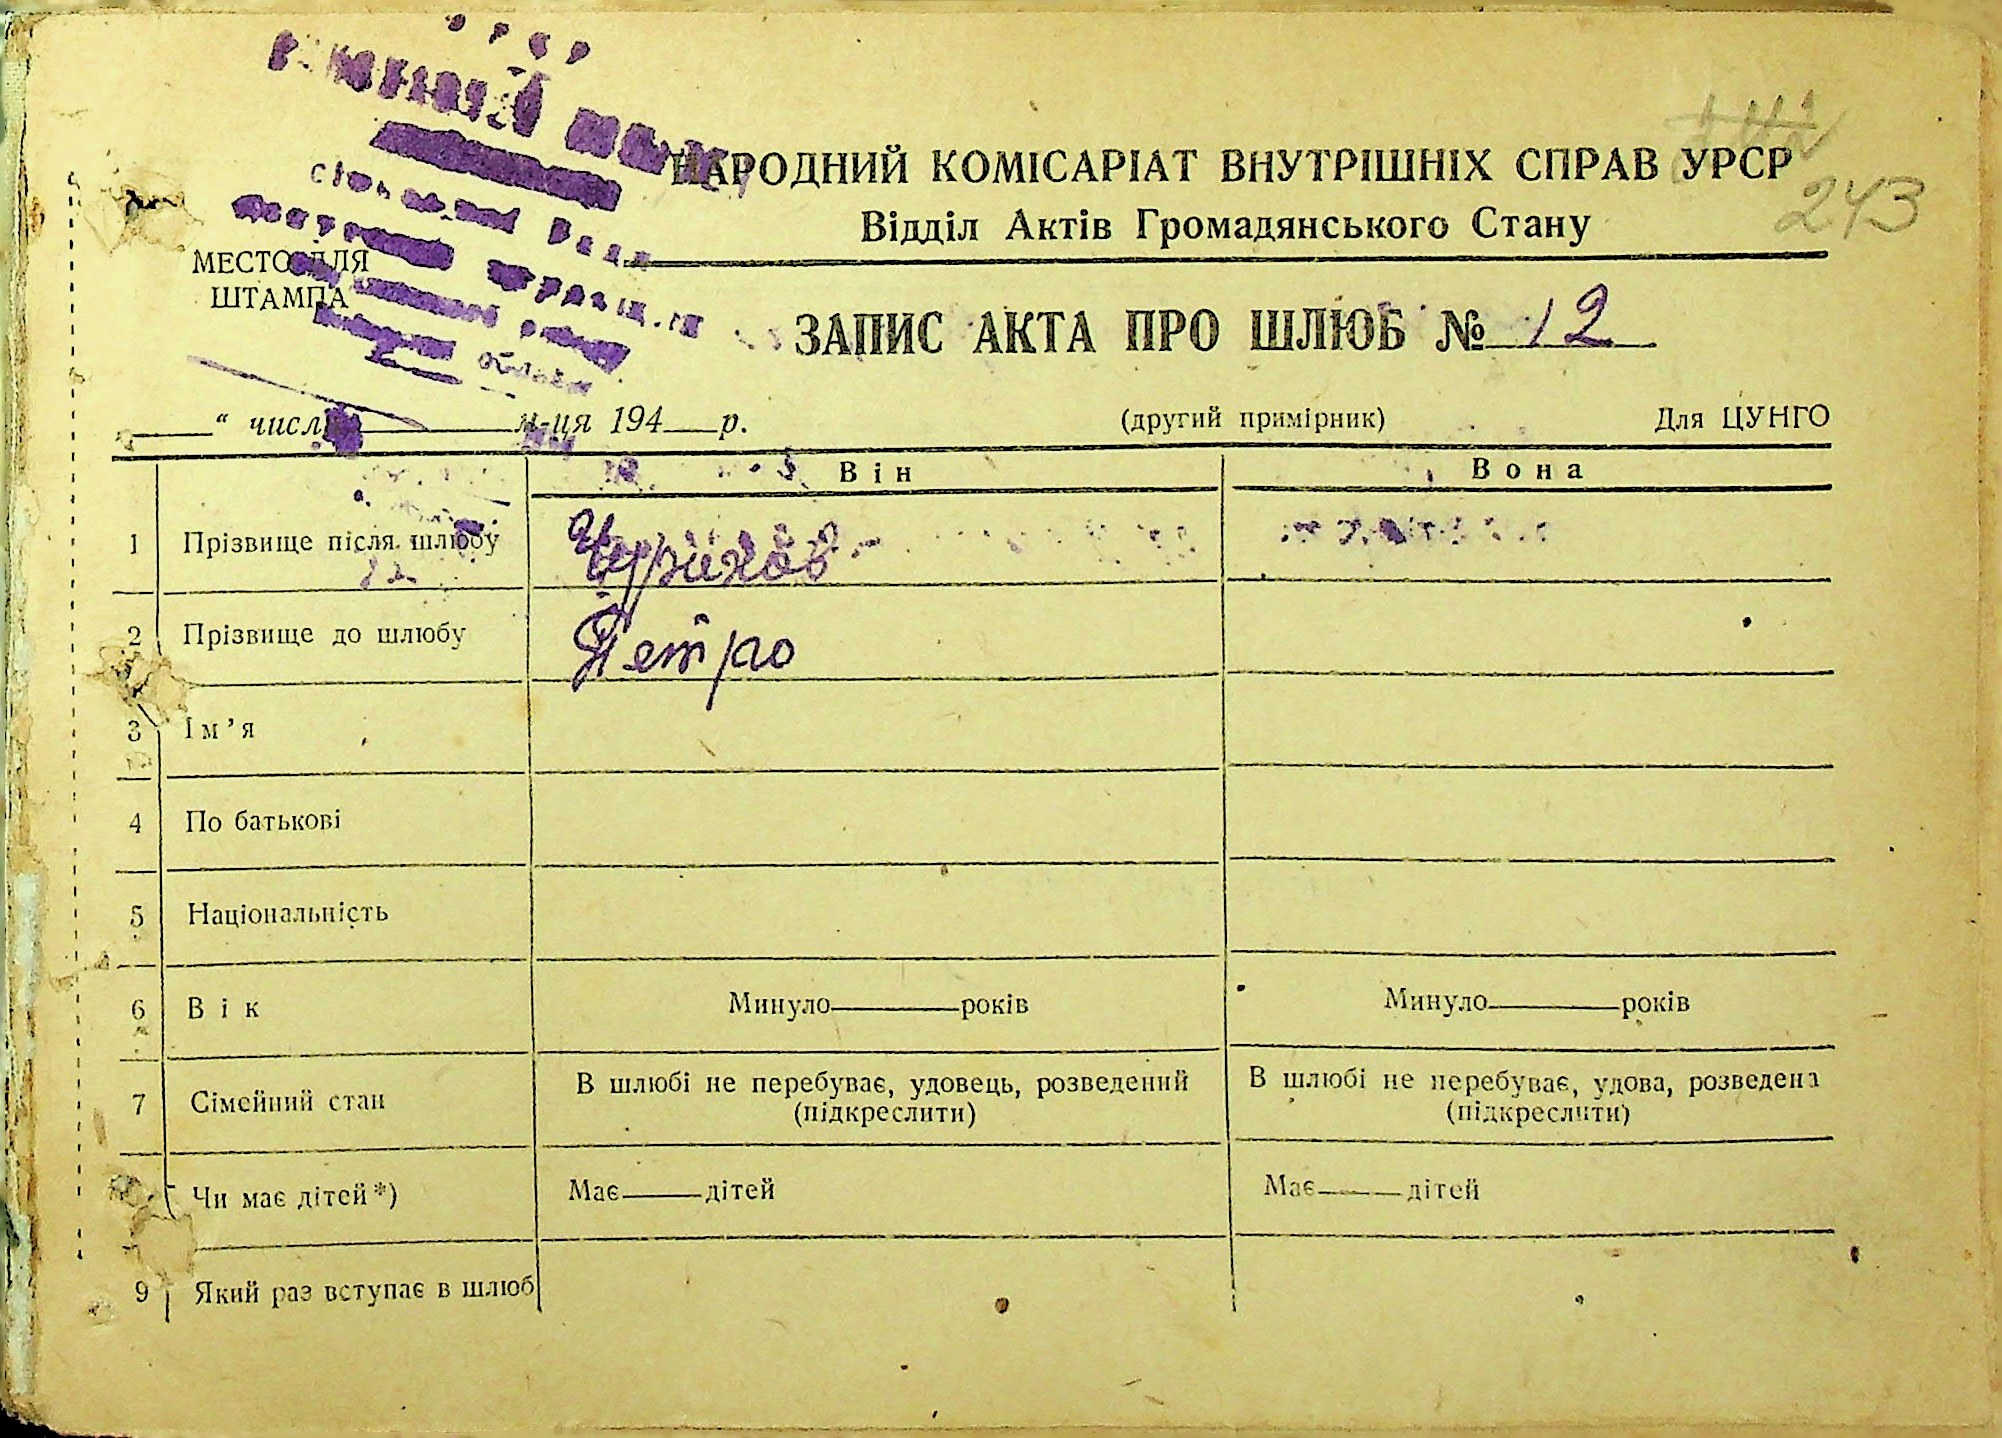 243
НАРОДНИЙ КОМІСАРІАТ ВНУТРІШНІХ СПРАВ УРСР
Відділ Актів Громадянського Стану
МЕСТО ДЛЯ
ШТАМПА
ЗАПИС АКТА ПРО ШЛЮБ № 12
“ числа м-ця 194 р. (другий примірник) Для ЦУНГО
Він Вона
1 Прізвище після шлюбу
2 Прізвище до шлюбу Петро
3 Ім’я
4 По батькові
5 Національність
6 Вік Минуло років Минуло років
7 Сімейний стан В шлюбі не перебуває, удовець, розведений (підкреслити) В шлюбі не перебуває, удова, розведена (підкреслити)
Чи має дітей*) Має дітей Має дітей
9 Який раз вступає в шлюб